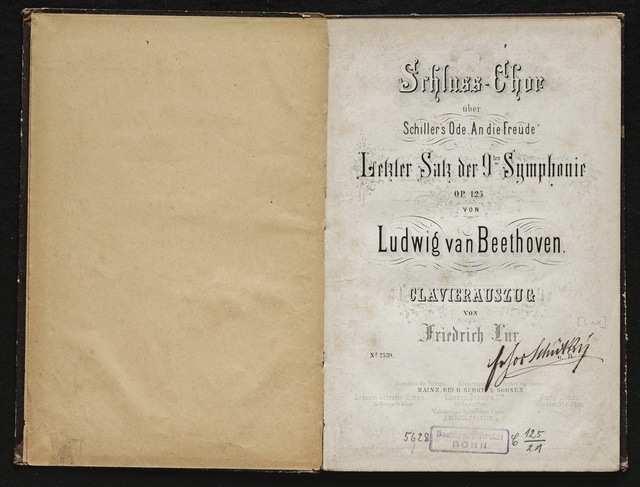 Schluss-Chor
über
Schiller's Ode „An die Freude“
Letzter Satz der 9ten Symphonie
OP. 125
VON
Ludwig van Beethoven.
CLAVIERAUSZUG
VON
Friedrich Lux.
[Lux]
No. 2539.
MAINZ, BEI B. SCHOTT'S SÖHNEN
5628
Beethoven-Archiv
BONN
C 125
21